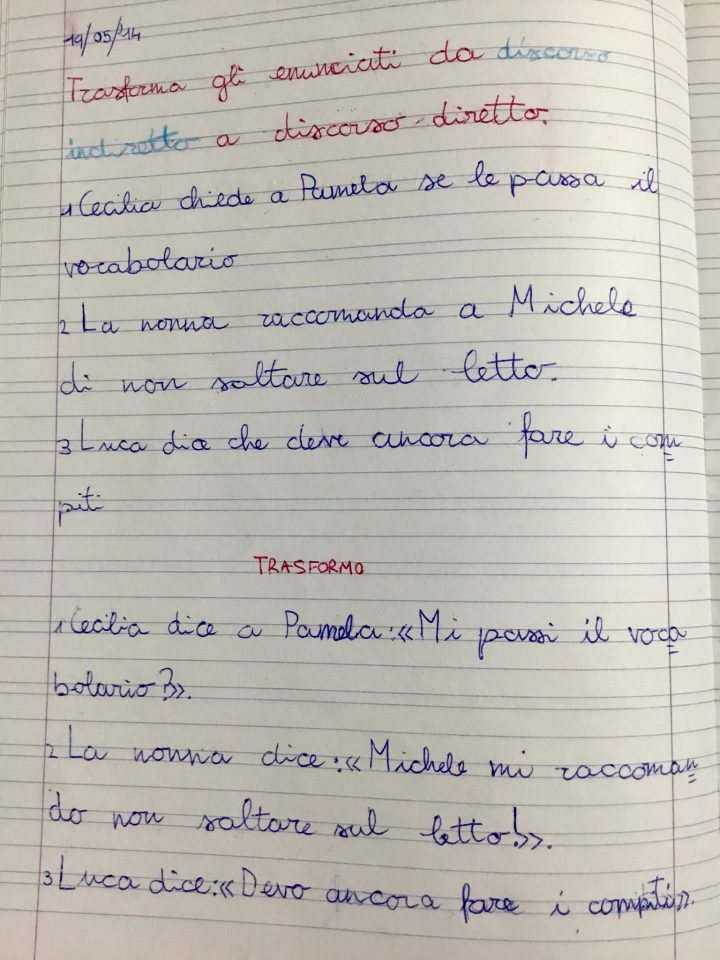 19/05/14
Trasforma gli enunciati da discorso
indiretto a discorso diretto.
1 Cecilia chiede a Pamela se le passa il
vocabolario
2 La nonna raccomanda a Michele
di non saltare sul letto.
3 Luca dice che deve ancora fare i com
piti
TRASFORMO
1 Cecilia dice a Pamela:«Mi passi il voca
bolario?».
2 La nonna dice:«Michele mi raccoman
do non saltare sul letto!».
3 Luca dice:«Devo ancora fare i compiti».